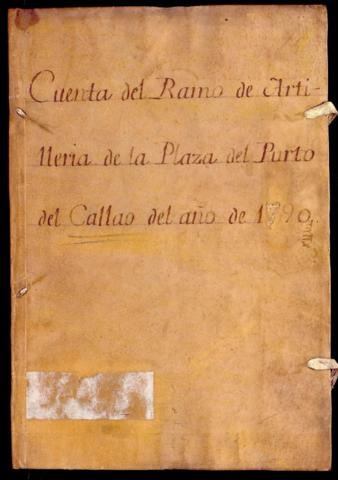 Cuenta del Ramo de Arti-
lleria de la Plaza del Purto
del Callao del año de 1790.